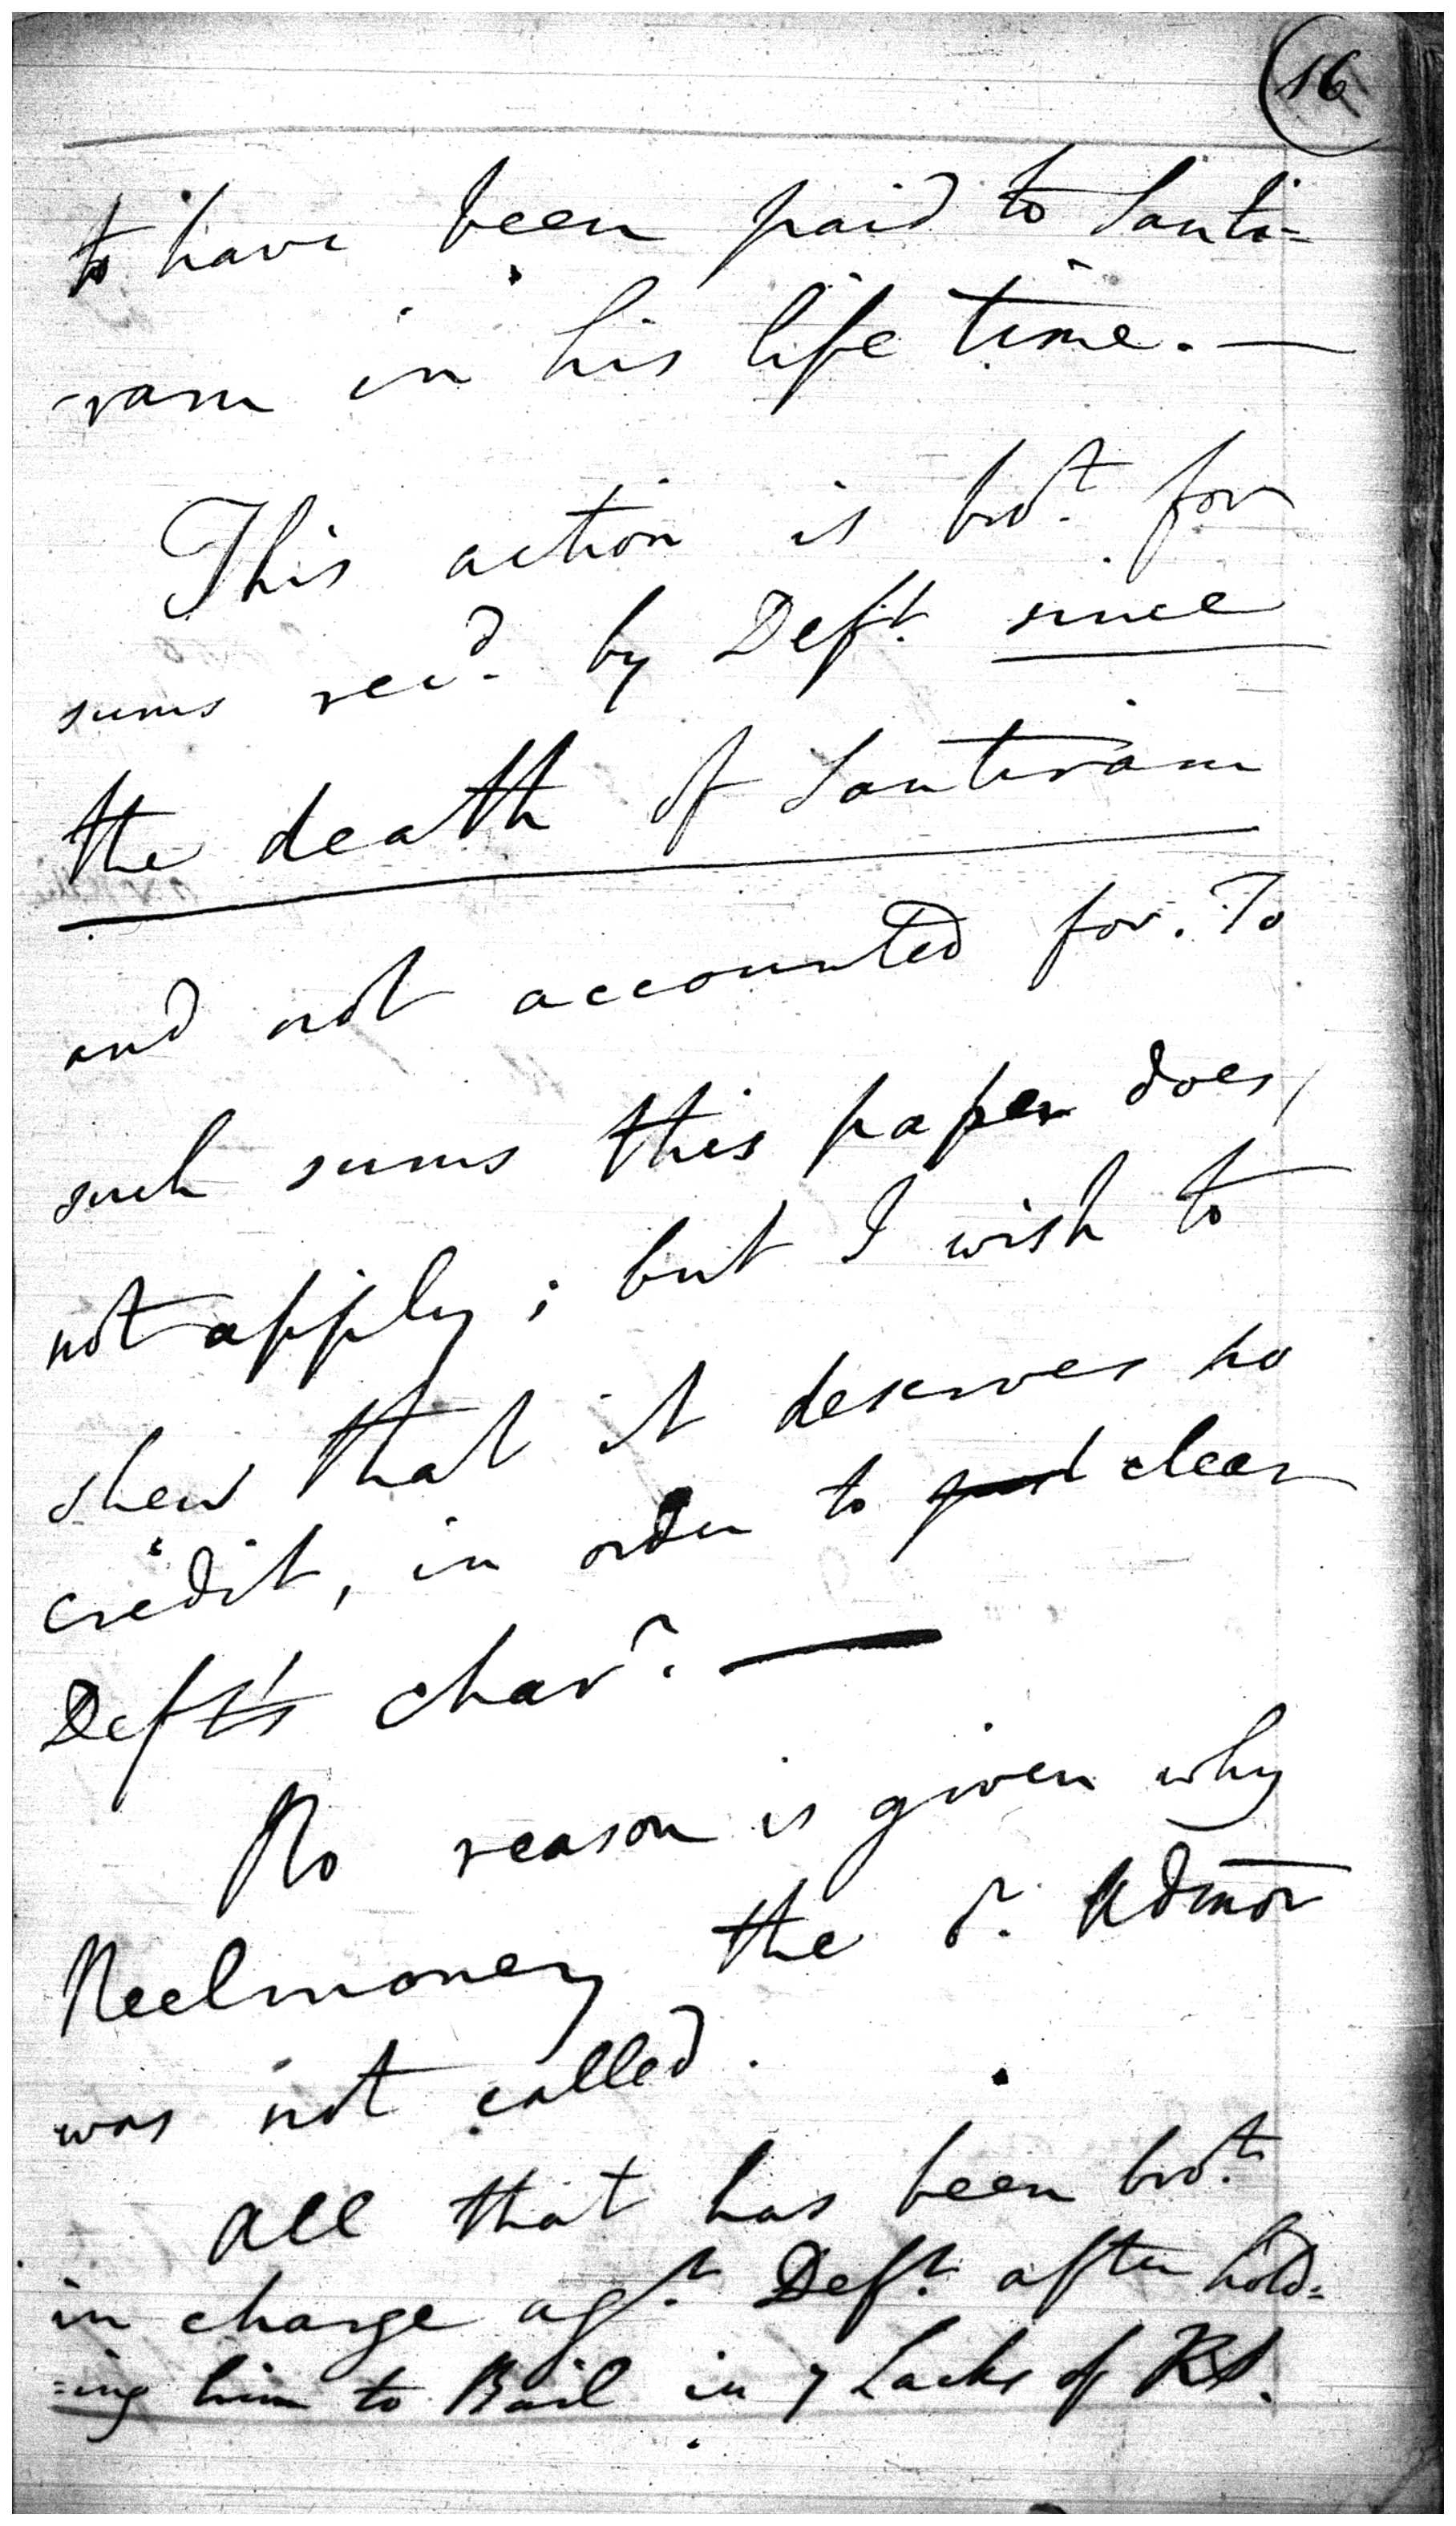 16
to have been paid to Santi=
-ram in his life time. —
This action is brot. for
sums recd. by Deft. since
the death of Santiram
and not accounted for. To
such sums this paper does
not apply; but I wish to
shew that it deserves no
credit, in order to clear
Deft's charr. —
No reason is given why
Neelmoney the or. Admor
was not called.
All that has been brot.
in charge agt. Deft. after hold=
=ing him to Bail in 7 Lacks of RS.